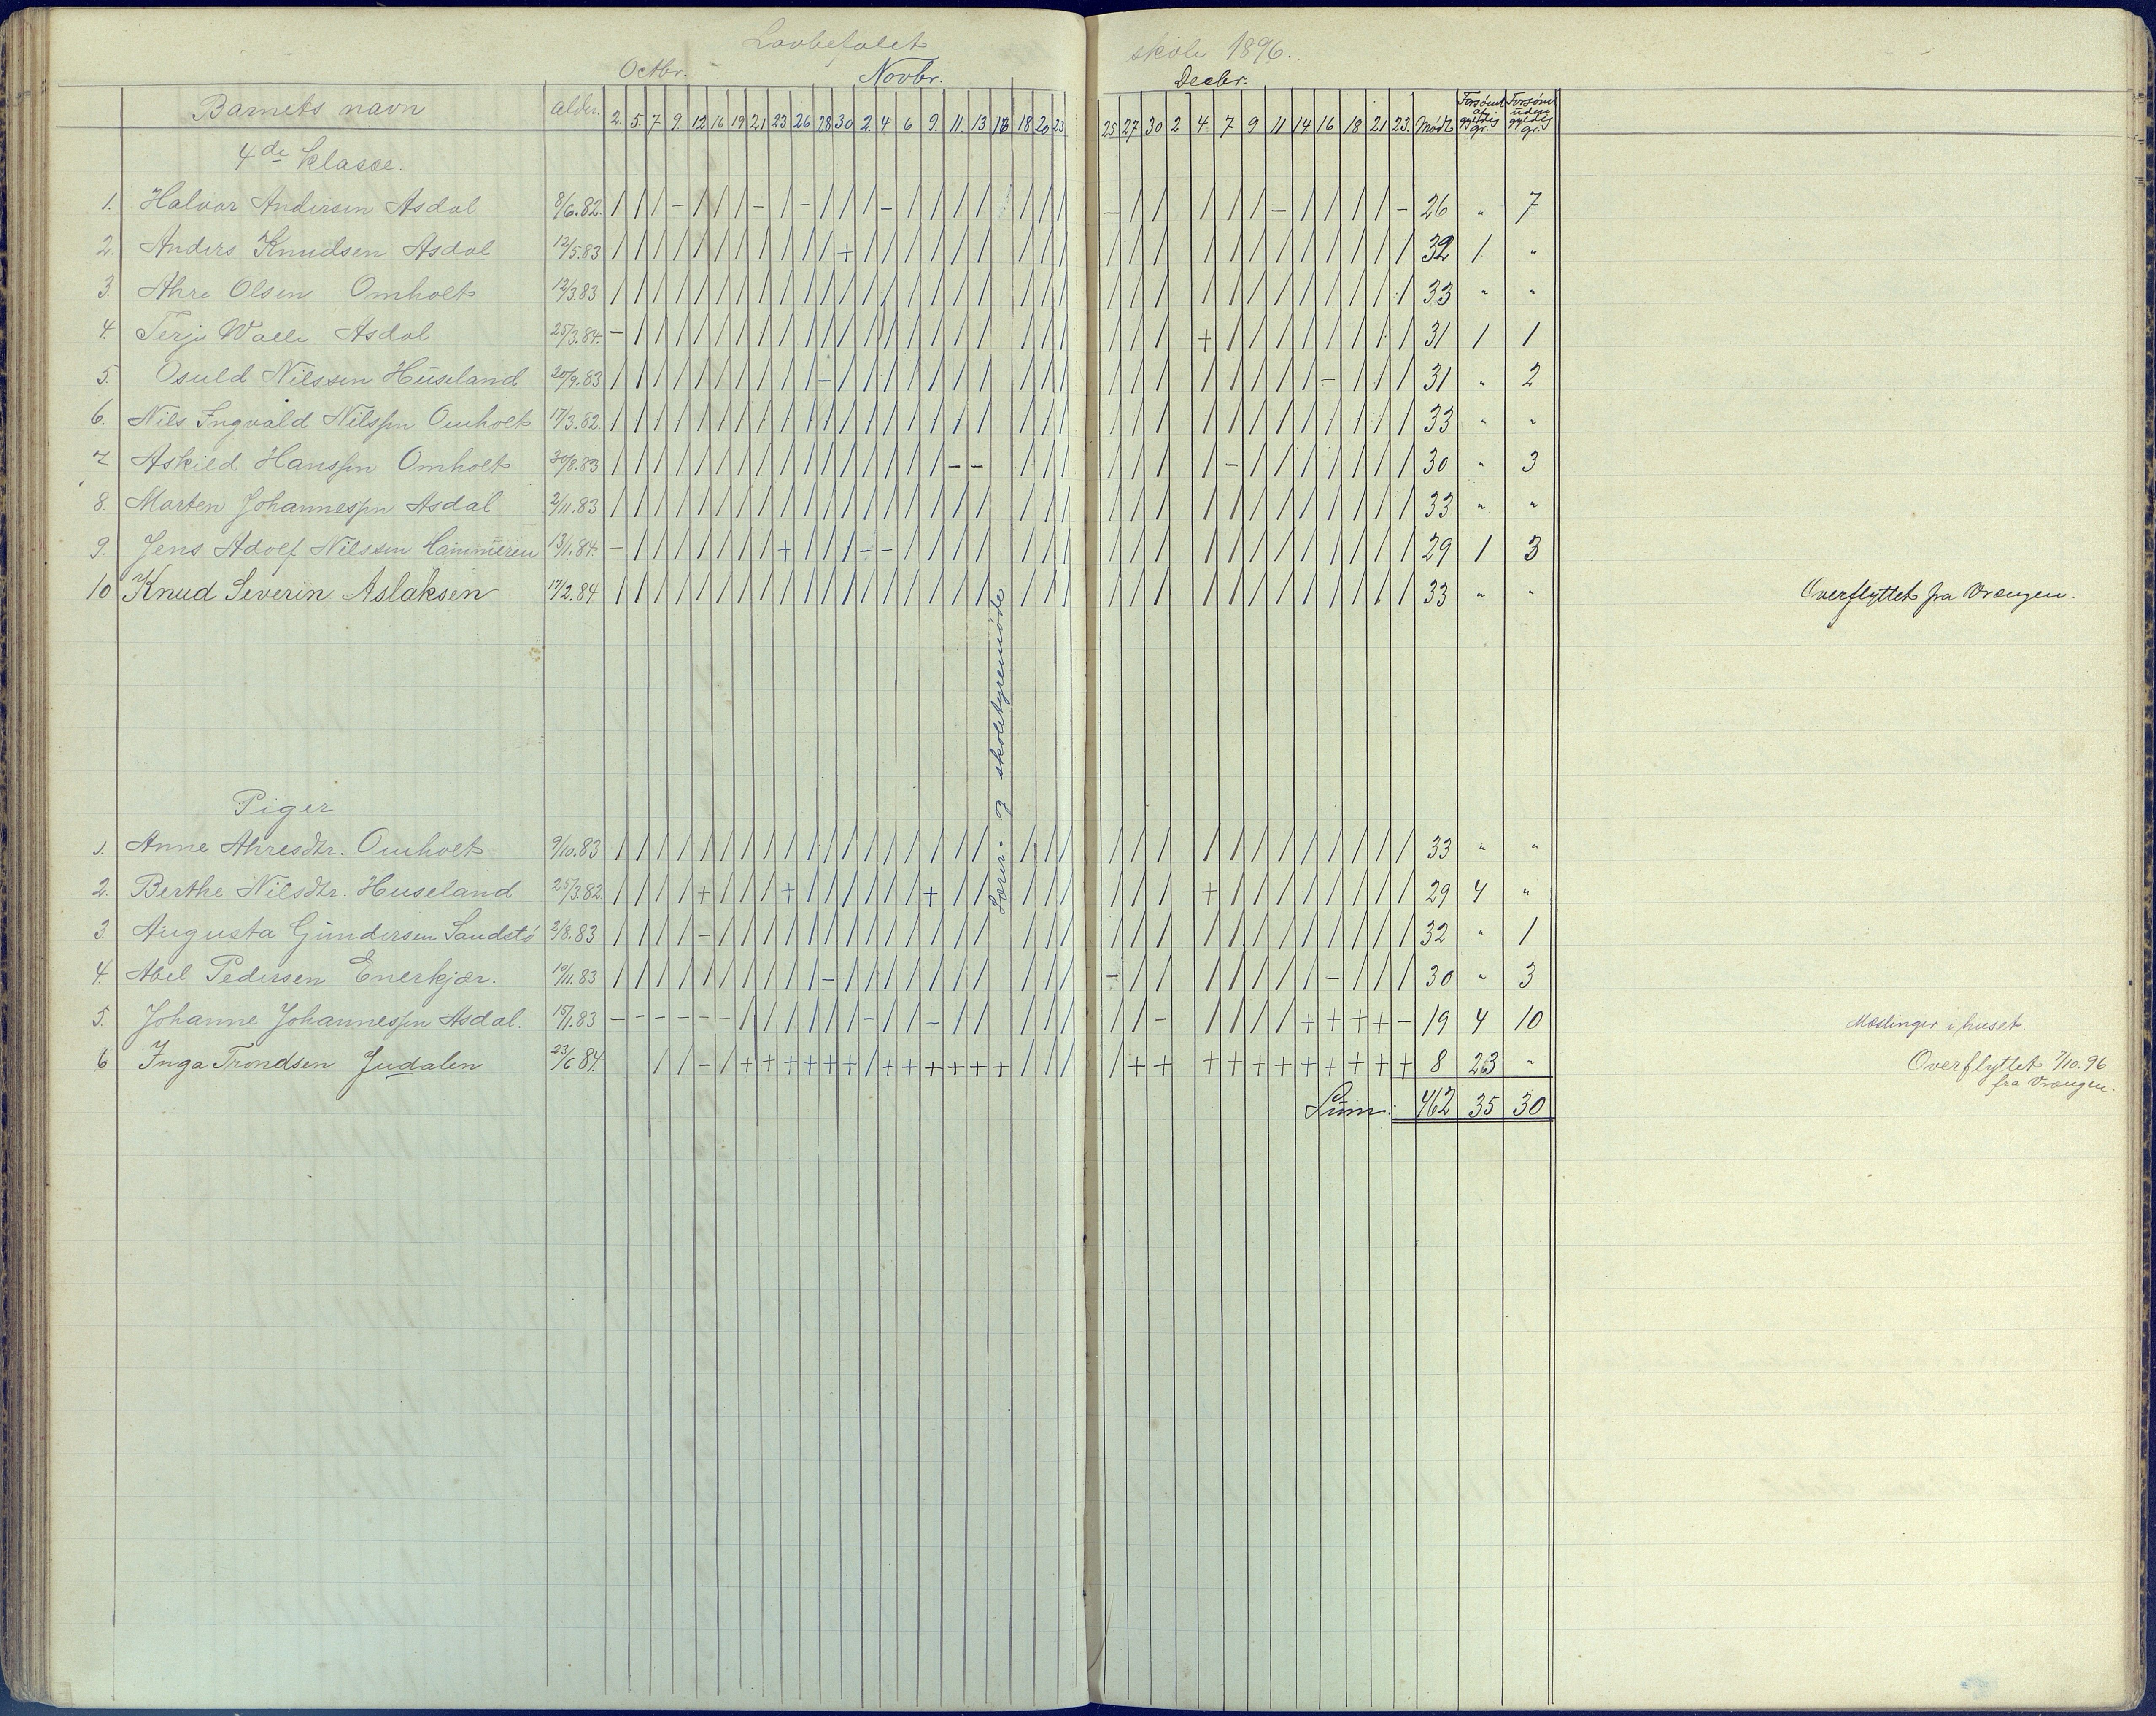 Lovbefalet skole 1896.
Octbr. Novbr. Decbr.
Barnets navn alder. 2. 5. 7 9 12 16 19 21 23 26 28 30 2. 4 6 9 11. 13 16 18 20 23 25 27 30 2 4 7 9 11 14 16 18 21 23. Mødt Forsømt af gyldig gr. Forsømt uden gyldig gr.
4de klasse.
1. Halvor Andersen Asdal 8/6.82. / / / - / / / - / - / / / - / / / / / / / - / / / / / - / / / / - 26 " 7
2. Anders Knudsen Asdal 12/5.83 / / / / / / / / / / / + / / / / / / / / / / / / / / / / / / / / / 32 1 "
3. Ahre Olsen Omholt 12/3.83 / / / / / / / / / / / / / / / / / / / / / / / / / / / / / / / / / 33 " "
4. Terje Walle Asdal 25/3.84. - / / / / / / / / / / / / / / / / / / / / / / / + / / / / / / / / 31 1 1
5. Osuld Nilssen Huseland 20/9.83 / / / / / / / / / / - / / / / / / / / / / / / / / / / / / - / / / 31 " 2
6. Nils Ingvald Nilssen Omholt 17/3.82 / / / / / / / / / / / / / / / / / / / / / / / / / / / / / / / / / 33 " "
7 Askild Hanssen Omholt 30/8.83 / / / / / / / / / / / / / / / / - - / / / / / / / - / / / / / / / 30 " 3
8. Marten Johannessen Asdal 2/11.83 / / / / / / / / / / / / / / / / / / / / / / / / / / / / / / / / / 33 " "
9. Jens Adolf Nilssen 13/1.84. - / / / / / / / + / / / - - / / / / / / / / / / / / / / / / / / / 29 1 3
10 Knud Severin Aslaksen 17/2.84 / / / / / / / / / / / / / / / / / / / / / / / / / / / / / / / / / 33 " " Overflyttet fra Vrængen.
Lærer- og skolestyremøde
Piger
1. Anne Ahresdtr. Omholt 9/10.83 / / / / / / / / / / / / / / / / / / / / / / / / / / / / / / / / / 33 " "
2. Berthe Nilsdtr. Huseland 25/3.82 / / / / + / / / + / / / / / / + / / / / / / / / + / / / / / / / / 29 4 "
3. Augusta Gundersen Sandstø 2/8.83 / / / / - / / / / / / / / / / / / / / / / / / / / / / / / / / / / 32 " 1
4. Abel Pedersen Enerkjær. 10/11.83 / / / / / / / / / / - / / / / / / / / / / - / / / / / / / - / / / 30 " 3
5. Johanne Johannessen Asdal. 15/1.83 - - - - - - / / / / / / - / / - / / / / / / / - / / / / + + + + - 19 4 10 Mæslinger i huset.
6 Inga Trondsen Judalen 23/6 84. / / - / + + + + + + / + + + + + + / / / / + + + + + + + + + + + 8 23 " Overflyttet 7/10.96
fra Vrængen.
Sum: 462 35 30